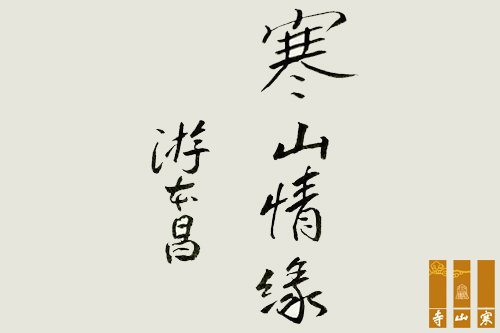 寒山情缘
游本昌
寒山寺